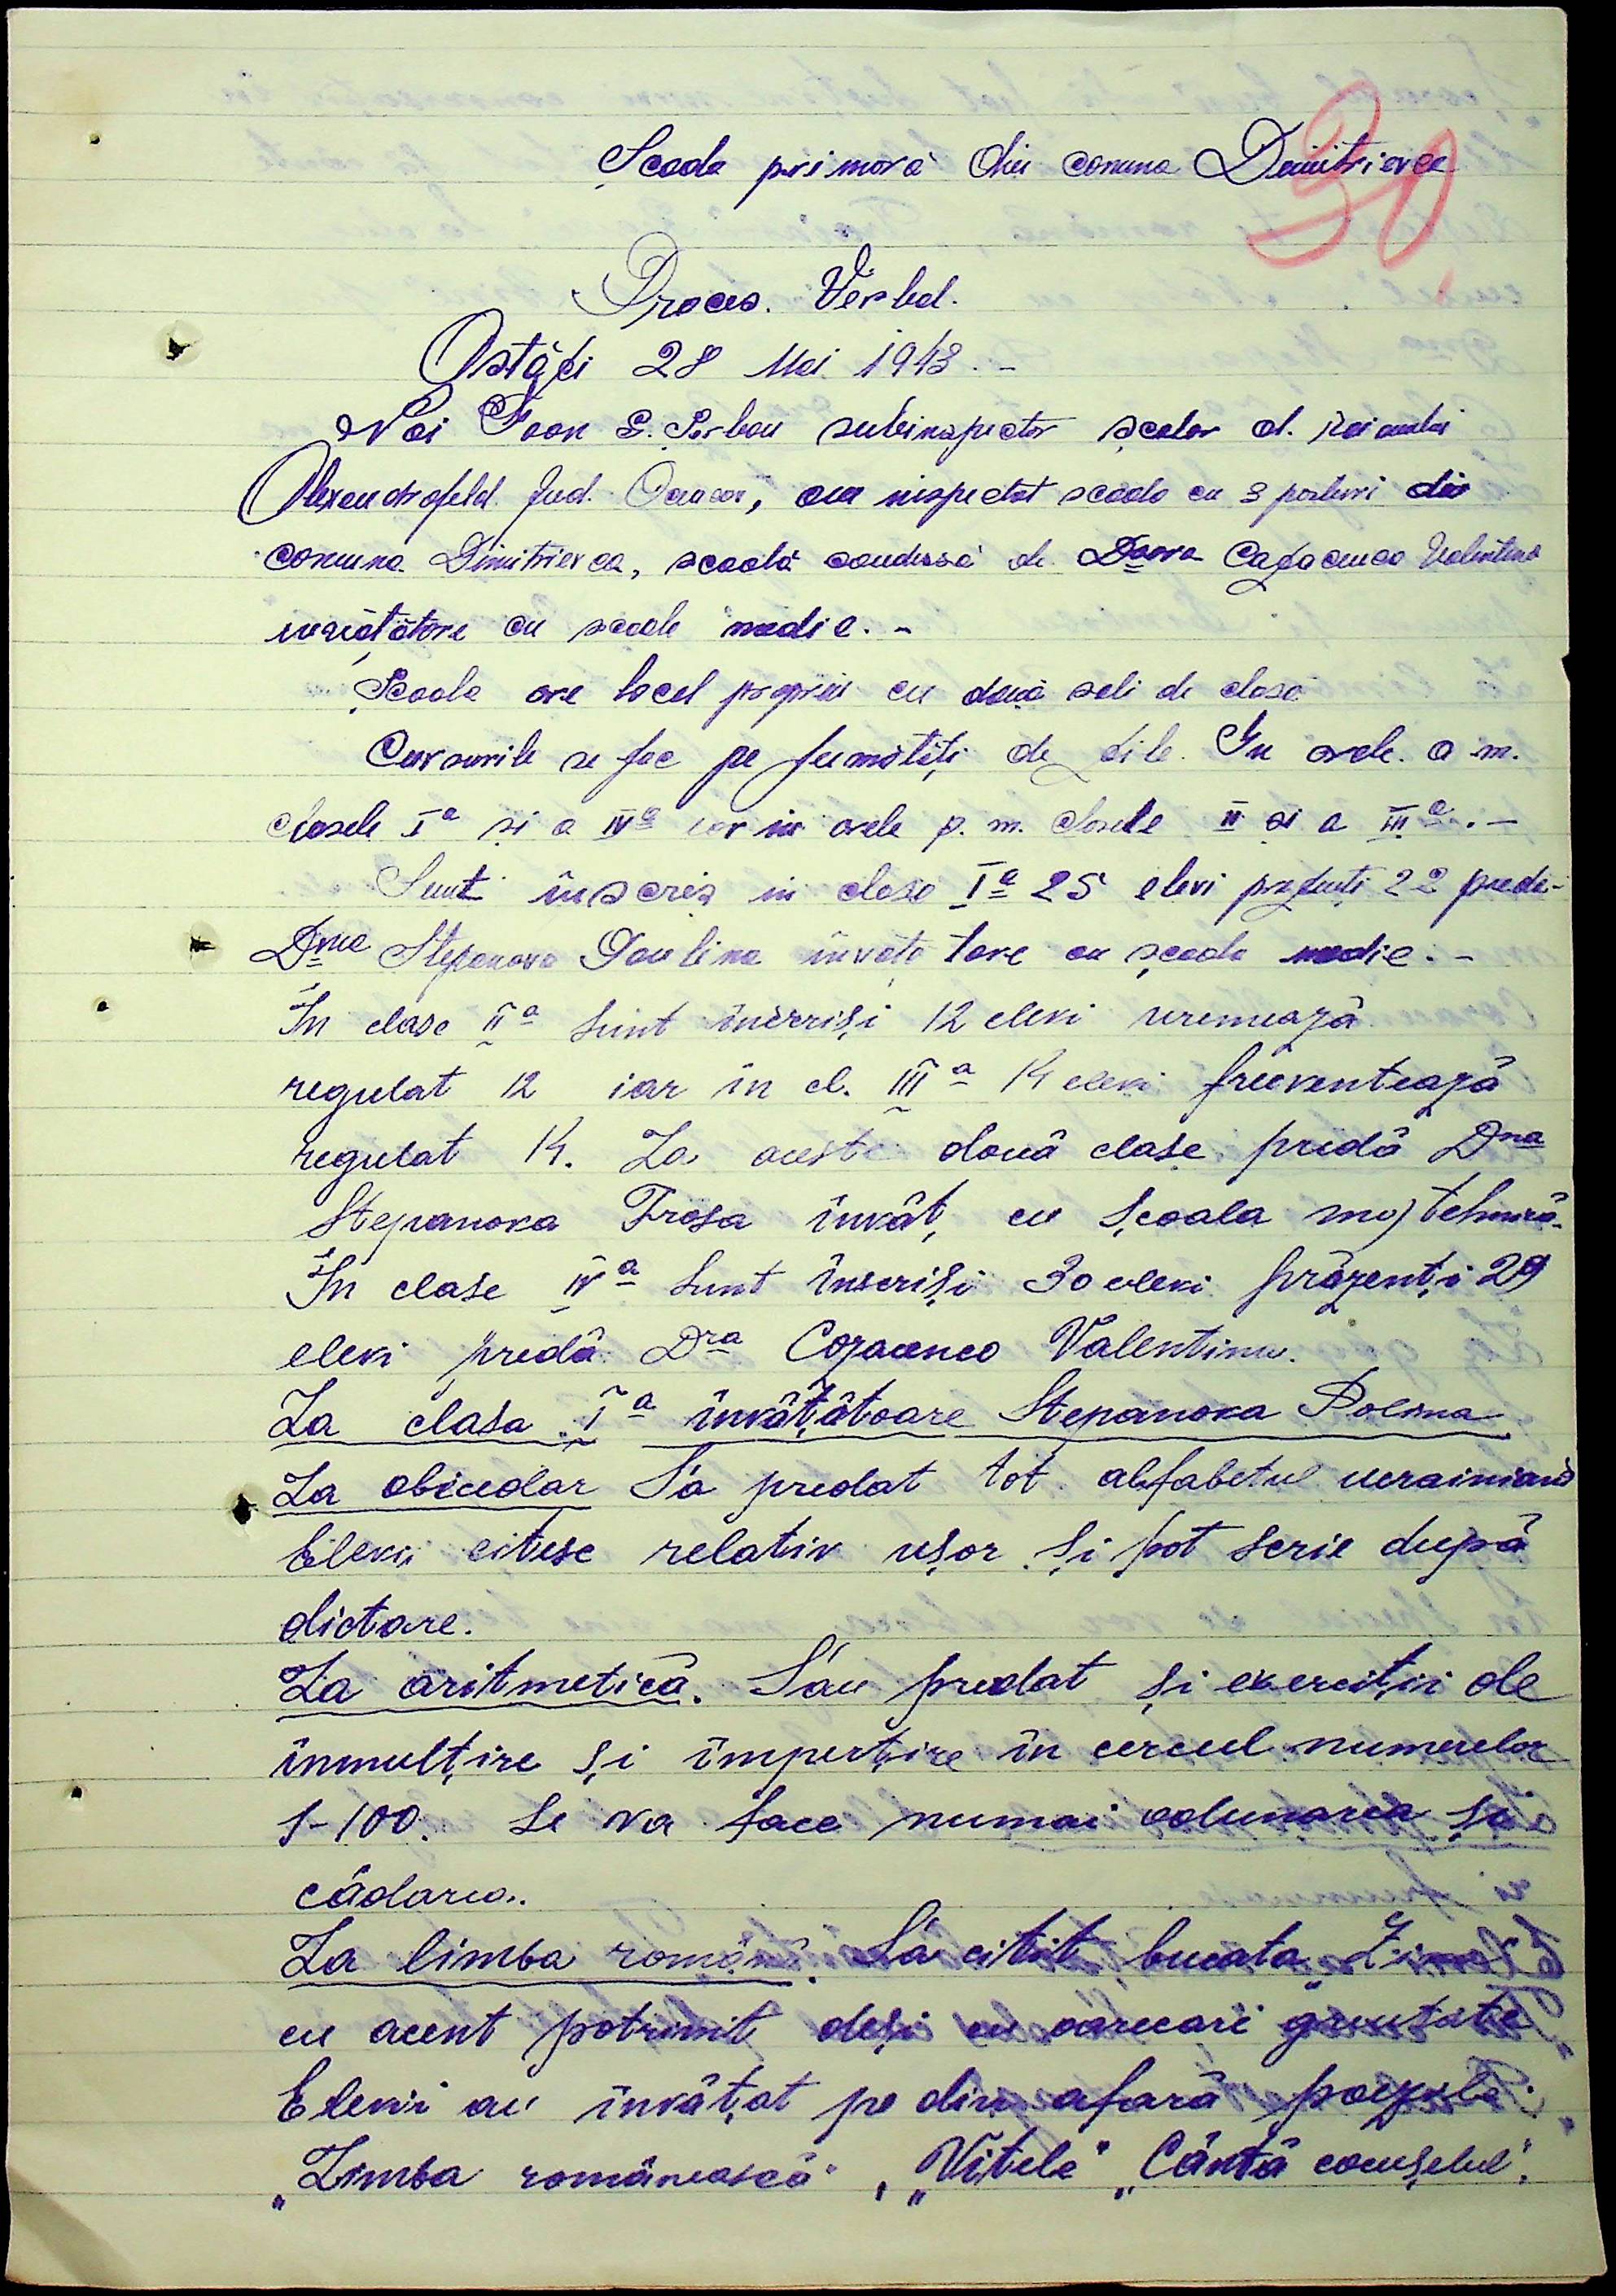 Școala primară din comuna Dimitrievca
30
Proces. Verbal.
Astăzi 28 Mai 1943. -
Noi Ioon G. Șerban subinspector școlar al. Raionului
Alexandrofeld Jud. Oceacov, am inspectat scoala cu 3 posturi din
comuna Dimitrievca, scoală condusă de Doara Cazacenco Valentina
învățătore cu scoale medie. -
Școala are local propriu cu două săli de clasă
Cursurile se fac pe jumătăți de zile. In orele. a. m.
clasele Iª și a IVª iar in orele p. m. clasele II și a IIIª. -
Sunt înscriș in clasa Iª 25 elevi prezenți 22 predă -
Dna Stepanova Paulina învățătoare cu școala medie. -
În clasa IIª sunt înscriși 12 elevi urmează
regulat 12 iar în cl. IIIª 14 elevi frecventează
regulat 14. La aceste două clase predă Dna
Stepanova Frosa învăț, cu școala tehnică.
În clase IVª sunt înscriși 30 elevi prezenți 29
elevi predă Dra Cozacenco Valentina.
La clasa Iª învățătoare Stepanova Polina
La abicedar S'a predat tot alfabetul ucrainian
Elevii citesc relativ ușor și pot scrie după
dictare.
La aritmetică. S'au predat și exerciții de
înmulțire și împerțire în cercul numerelor
1-100. Se va face numai adunarea și
cădarea.
La limba română. S'a citit bucata „
cu acent potrivit deși cu oarecari greutate
Elevii au învățat pe din afară poeziile:
„Limba românească" , „Vitele" „Cântă coușelul".